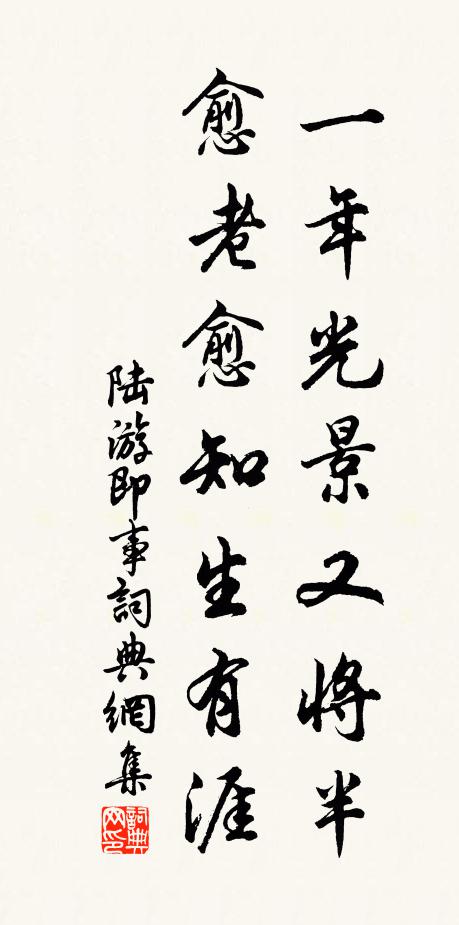 一年光景又将半
愈老愈知生有涯
陆游即事詞典網集
詞典网印